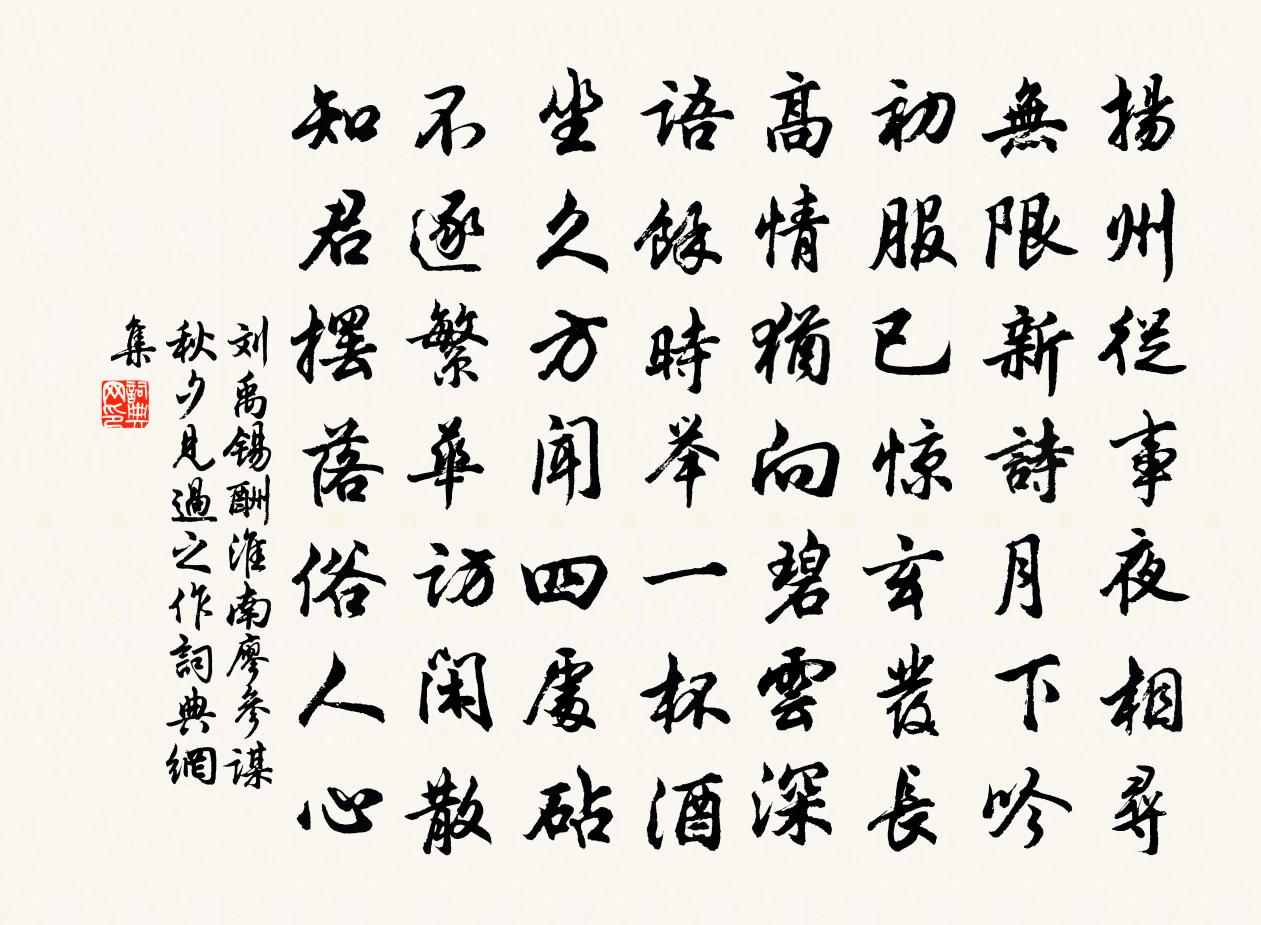 揚州從事夜相尋
無限新詩月下吟
初服已惊玄發長
高情猶向碧雲深
語餘時举一杯酒
坐久方闻四處砧
不逐繁華访闲散
知君擺落俗人心
刘禹錫酬淮南廖參謀
秋夕見過之作詞典網
集
詞典网印